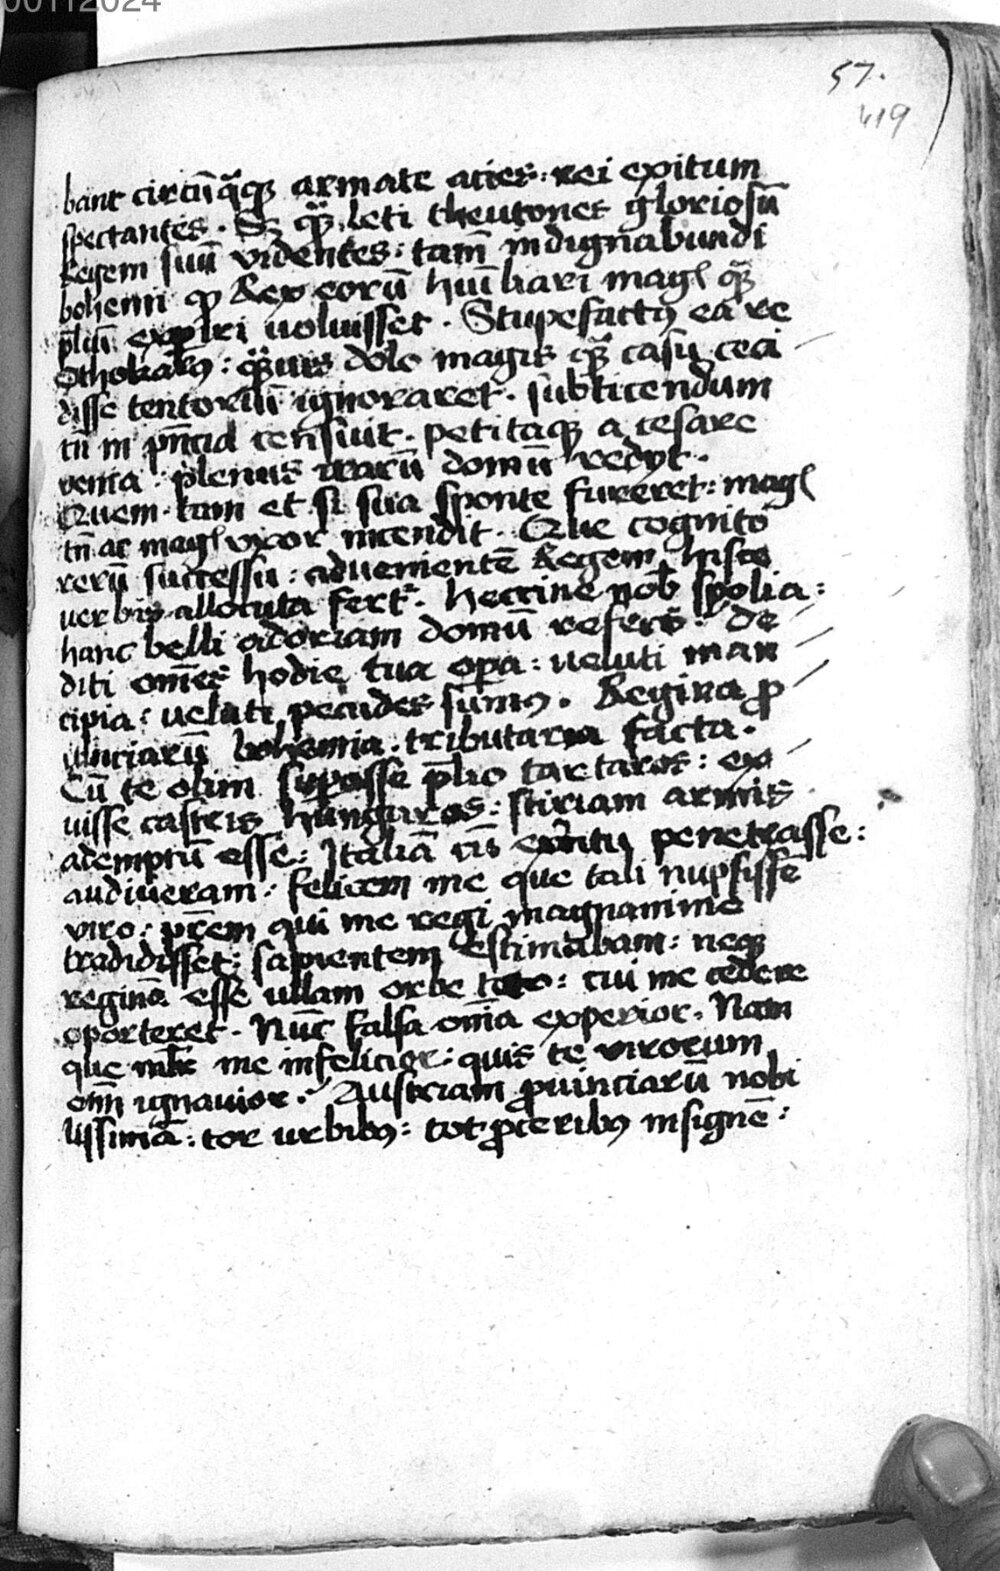 00112024
57.
419
bant circūq̄q̨ armate acies : rei exitum
spectantes . Sꝫ q̄ȝ leti theutones gloriosū
Regem suū videntes : tam̄ indignabundi
bohemi qꝫ Rex eorū hūiliari magꝭ q̄ȝ
p̄liū experiri uoluisset . Stupefactꝰ ea re
Othokarꝰ : q̄ȝuis dolo magis q̄ȝ casu ceci
disse tentoriū ignoraret . subticendum
tn̄ in p̄ncia censuit . petitaqꝫ a cesare
venia : plenus irarū domū redyt .
Quem . tam et si sua sponte fureret : magꝭ
tn̄ ac magꝭ vxor incendit . Que cognito
rerū successu : aduenientē Regem hisce
uerbis allocuta fert᷑ . heccine nob̄ spolia :
hanc belli adoriam domū refers . de
diti om̄es hodie tua opa : ueluti man
cipia : ueluti pecudes sumꝰ . Regina ꝓ
uinciarū bohemia . tributaria facta .
Cū te olim supasse p̄lio tartaros : ex
uisse castris hungaros : stiriam armis
ademptū esse : Italiā penetrasse :
audiueram : felicem me que tali nupsissē
viro : p̄rem qui me regi magnanimo
tradidisset : sapientem estimabam : neqꝫ
reginā esse ullam orbe toto : cui me cedere
oporteret . Nūc falsa om̄ia experior . Nam
que me infelicior : quis te virorum
om̄ ignauior . Austriam ꝓuinciarū nobi
lissimā : tot urbibꝰ : tot ꝓceribꝰ insignē :